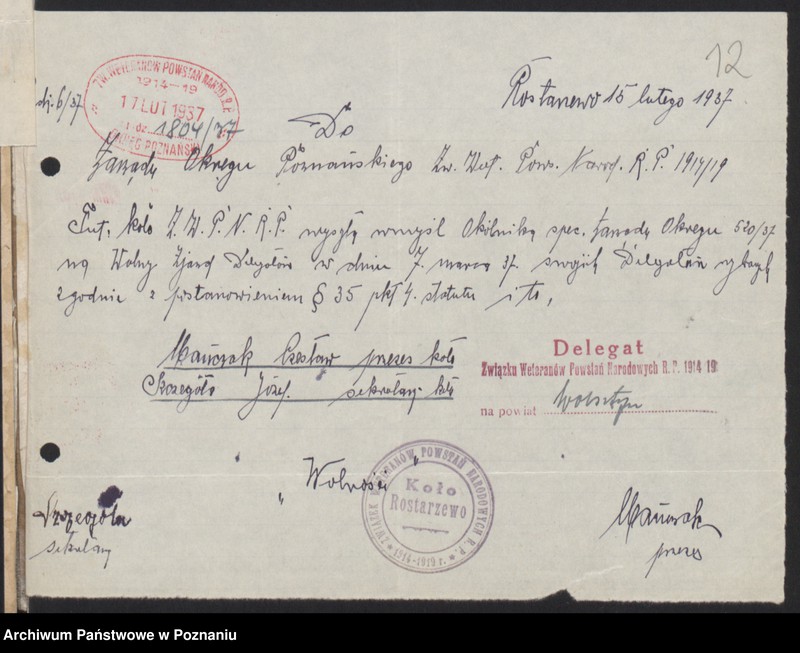 12
dz. 6/37
ZW. WETERANÓW POWSTAŃ NAROD. R.P.
1914-19
17 LUT 1937
L. dz. 1804/37
OKRĘG POZNAŃSKI
Rostarzewo 15 lutego 1937
Do
Zarządu Okręgu Poznańskiego Zw. Wet. Pows. Narod. R. P. 1914/19
Tut. koło Z. W. P. N. R. P. wysyła w myśl Okólnika spec. Zarządu Okręgu 520/37
na Walny Zjazd Delegatów w dniu 7. marca 37. swych Delegatów
zgodnie z postanowieniem § 35 pkt 4. statutu i to,
Mańczak Czesław prezes koła
Szczegóła Józef. sekretarz koła
Delegat
Związku Weteranów Powstań Narodowych R. P. 1914 19
na powiat Wolsztyn
„Wolność"
ZWIĄZEK WETERANÓW POWSTAŃ NARODOWYCH R.P.
Koło
Rostarzewo
1914-1919 r.
Szczegóła
sekretarz
Mańczak
prezes
Archiwum Państwowe w Poznaniu